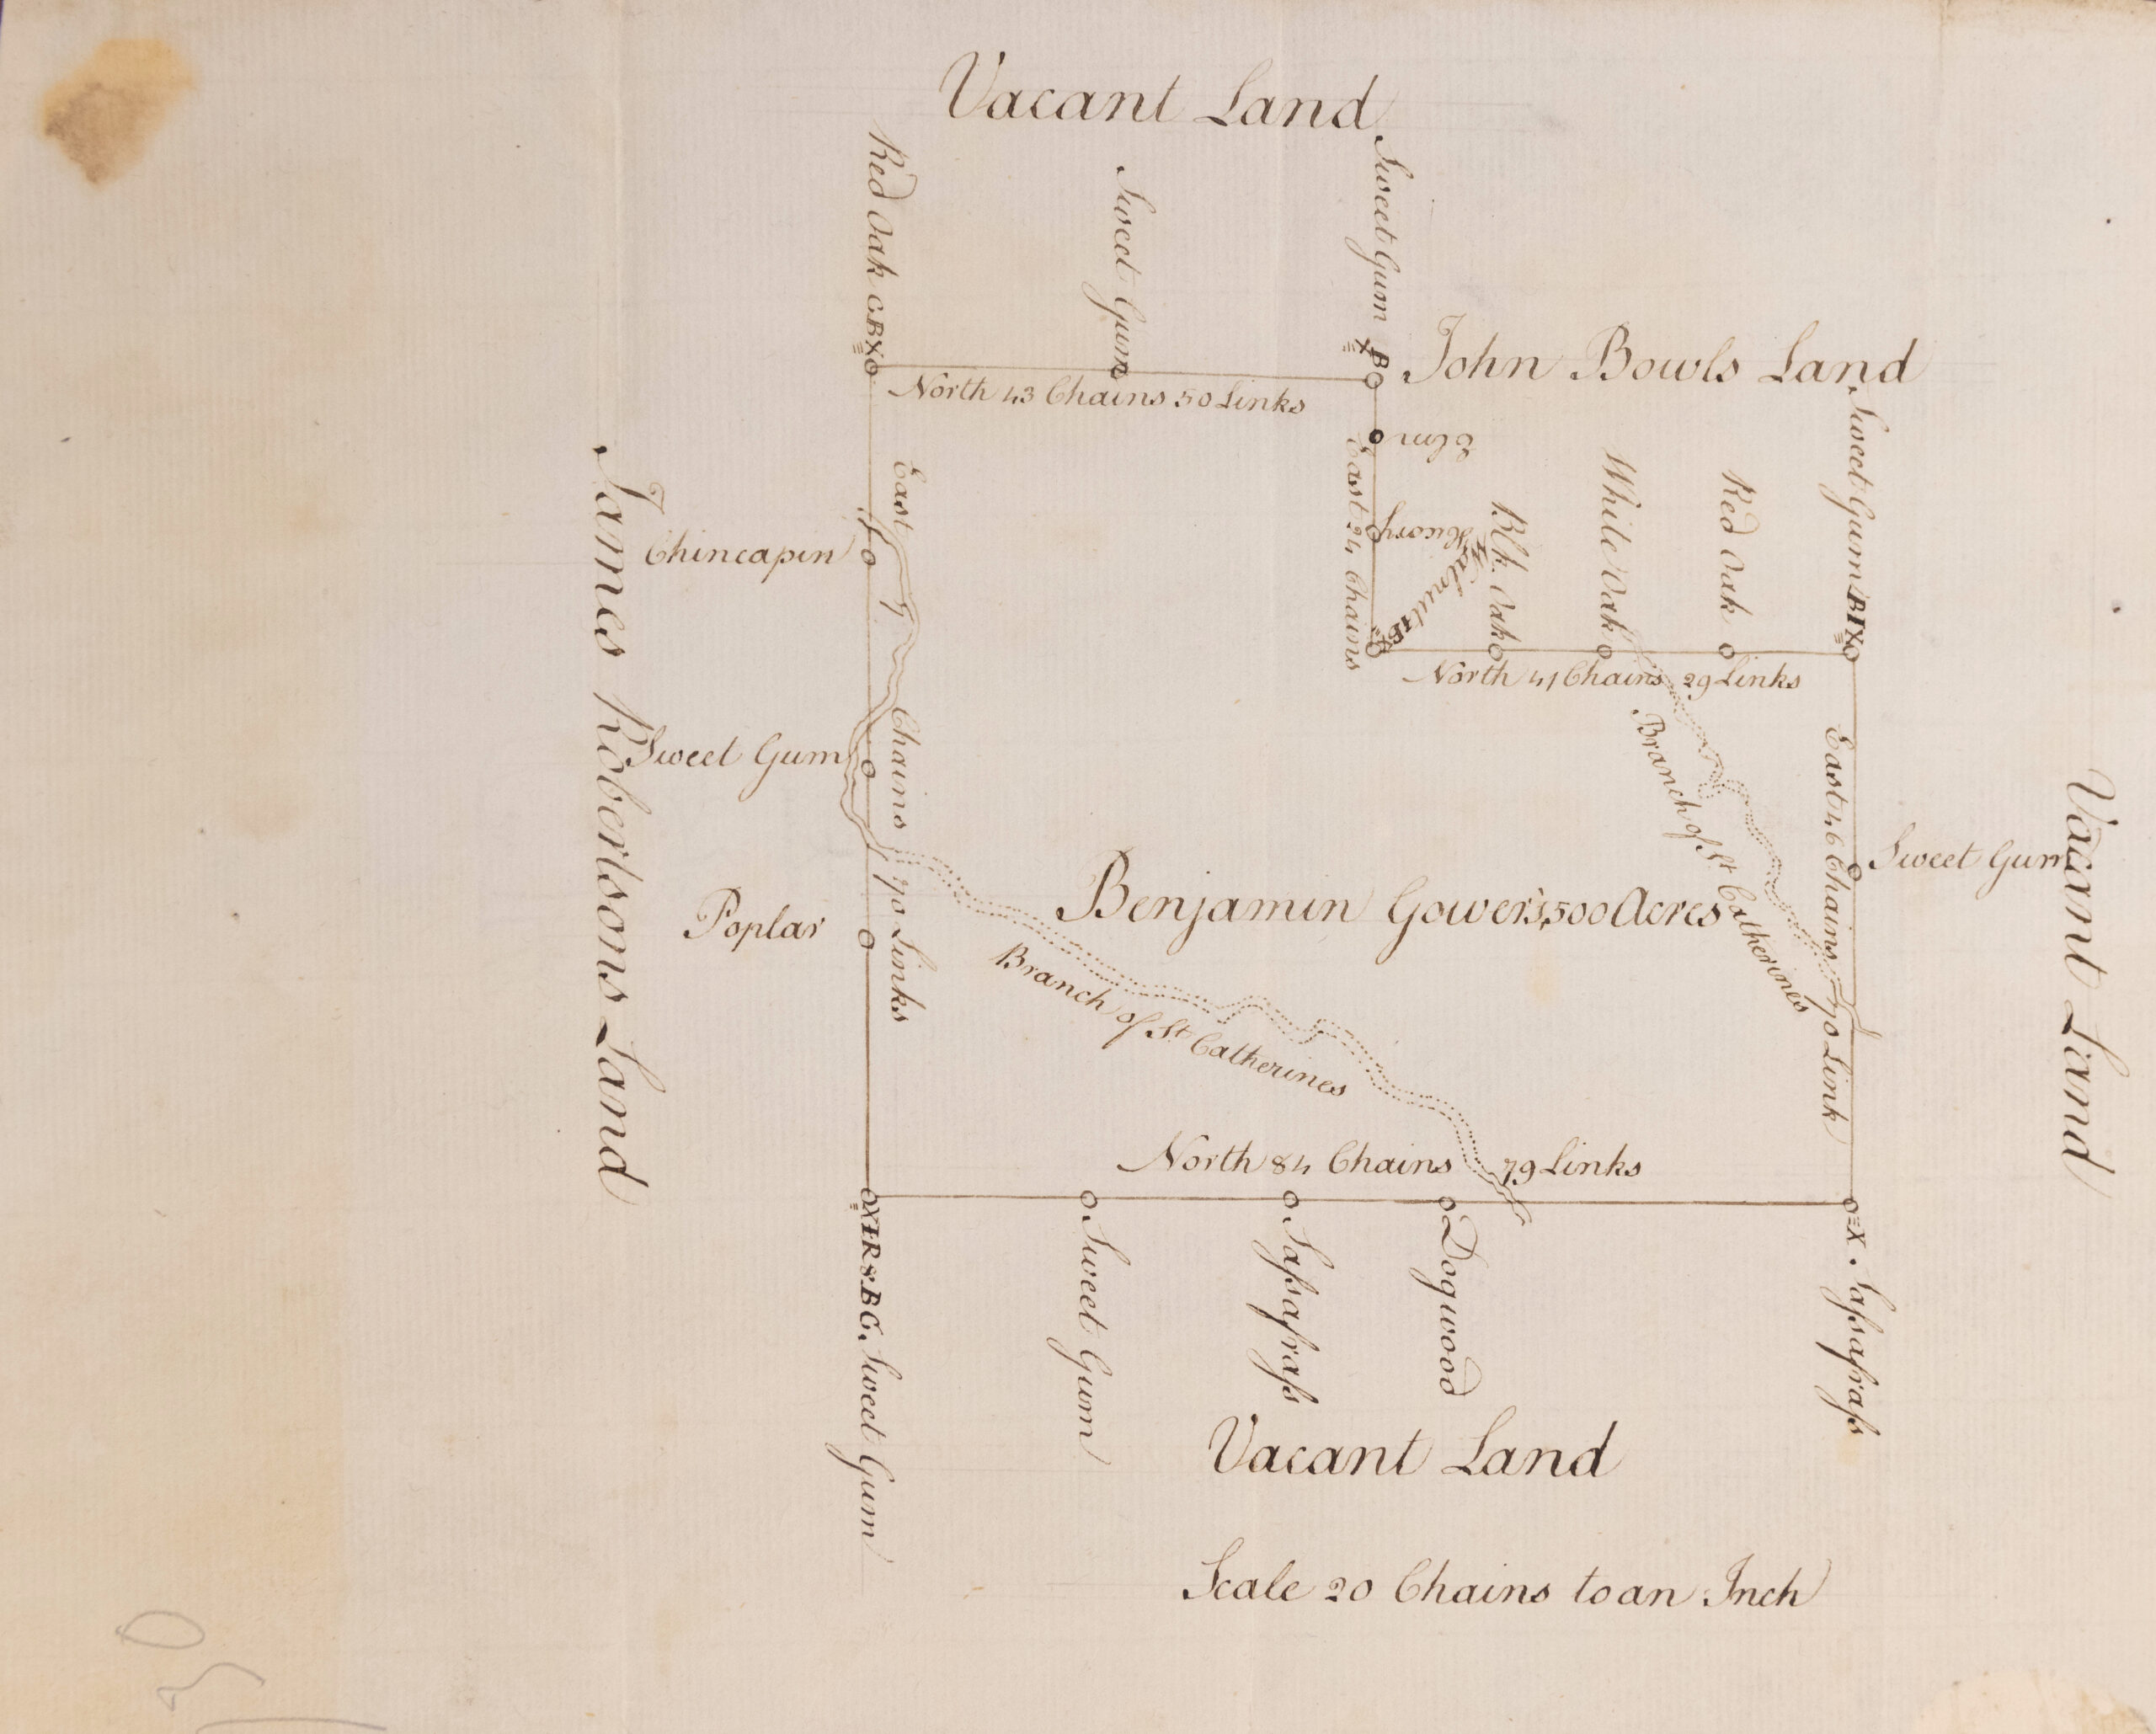 Vacant Land
Red Oak C.BX
Sweet Gum
Sweet Gum XB
John Bowls Land
North 43 Chains 50 Links
Elm
Hicory
Walnut
East 24 Chains
Blk. Oak
White Oak
Red Oak
Sweet Gum BIX
North 41 Chains 29 Links
James Robertsons Land
Chincapin
Sweet Gum
Poplar
East 7 Chains 70 Links
Branch of St Catherines
East 46 Chains 70 Link
Sweet Gum
Vacant Land
Benjamin Gower's 500 Acres
Branch of St Catherines
North 84 Chains 79 Links
XIR&BG. Sweet Gum
Sweet Gum
Saſsafraſs
Dogwood
X. Saſsafraſs
Vacant Land
Scale 20 Chains to an Inch